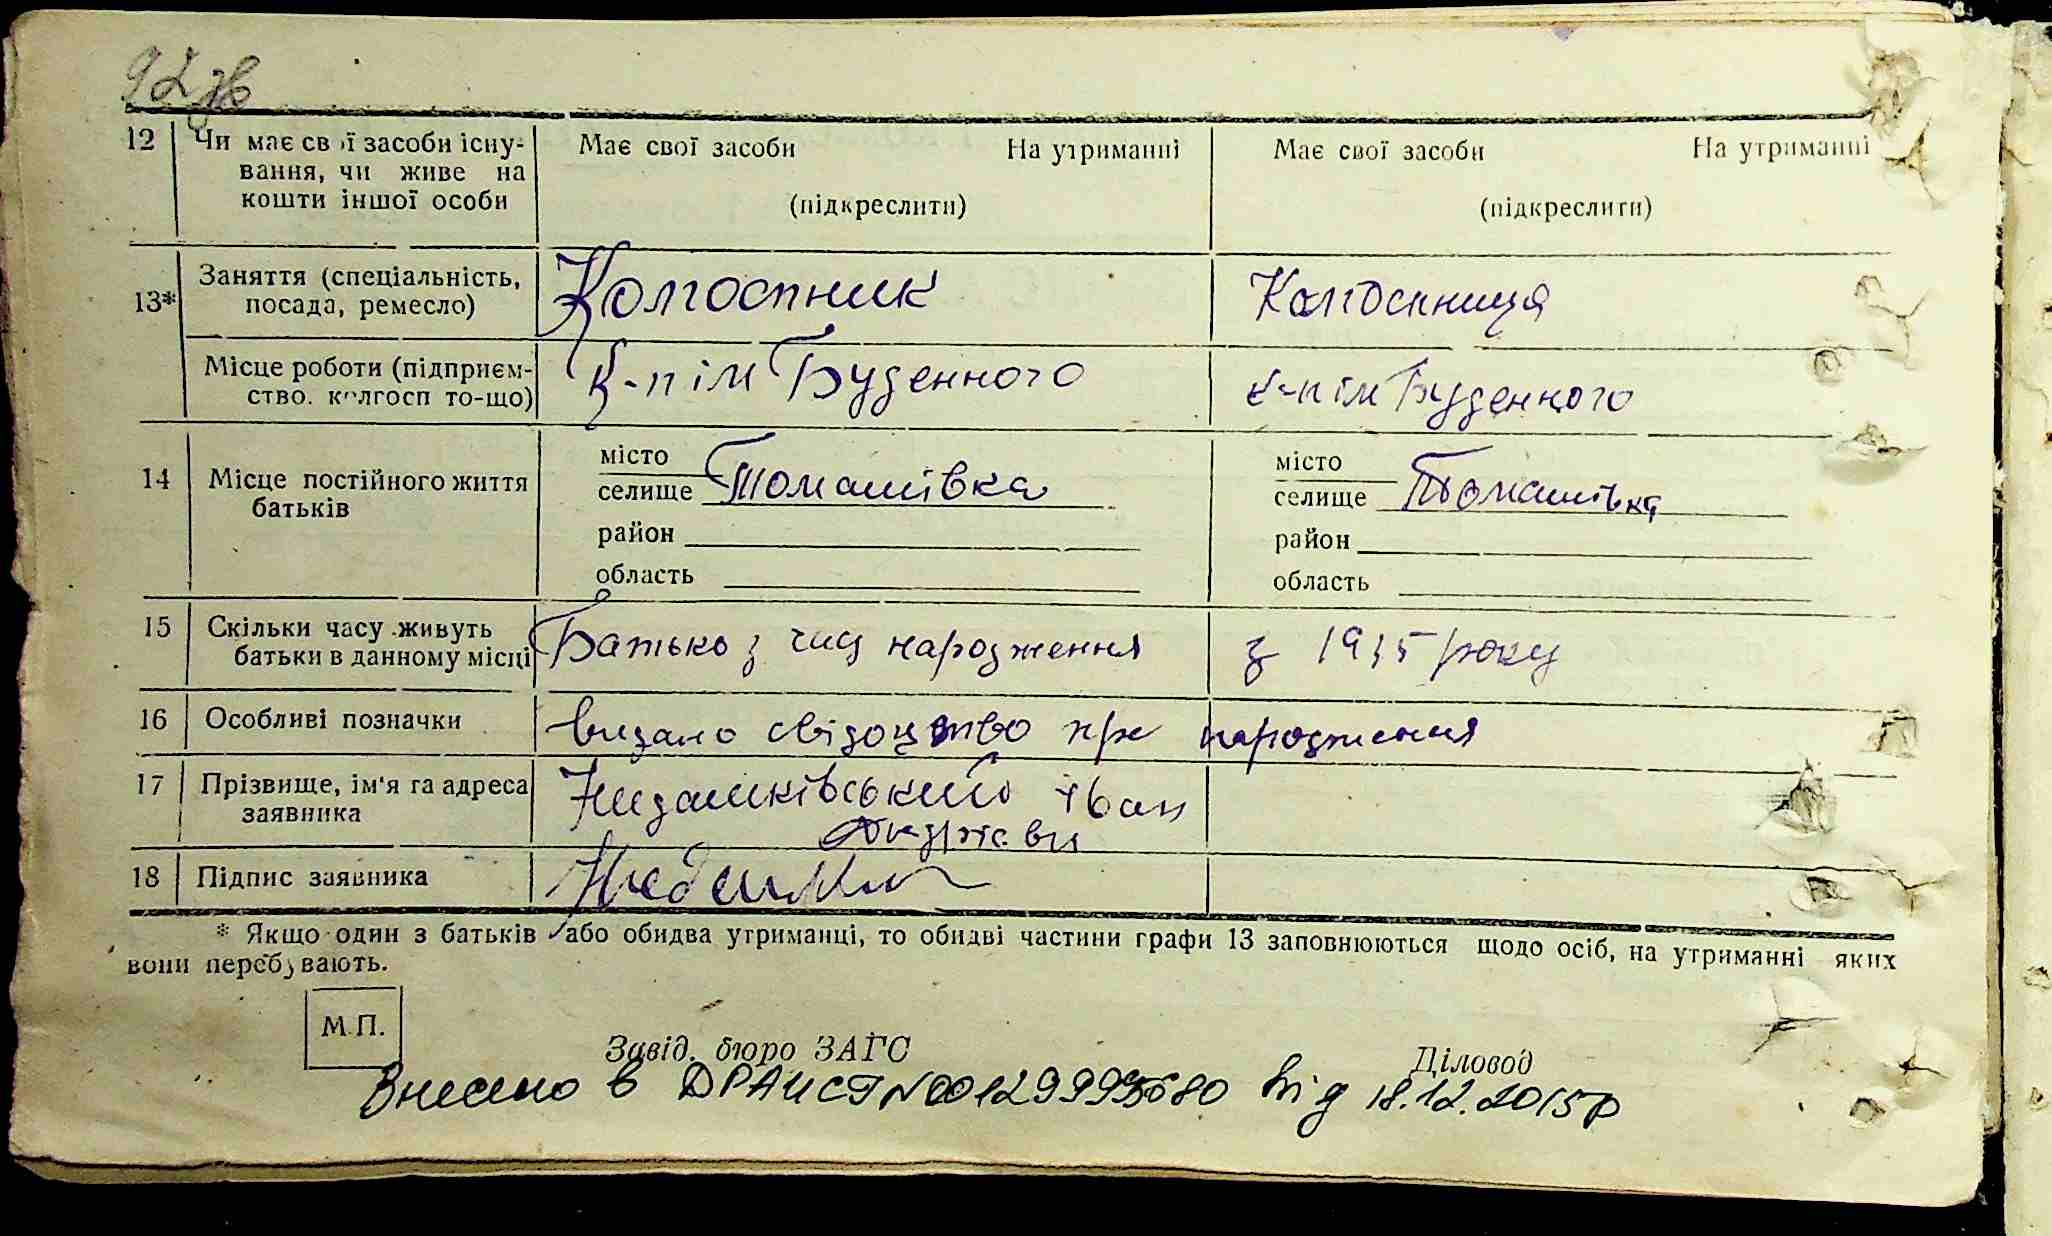 92зв
12 Чи має свої засоби існу- Має свої засоби На утриманні Має свої засоби На утриманні
вання, чи живе на
кошти іншої особи (підкреслити) (підкреслити)
13* Заняття (спеціальність, Колгоспник Колгоспниця
посада, ремесло)
Місце роботи (підприєм- к-п ім Буденного к-п ім Буденного
ство. колгосп то-що)
14 Місце постійного життя місто місто
батьків селище Томашівка селище Томашівка
район район
область область
15 Скільки часу живуть Батько з часу народження з 1935 року
батьки в данному місці
16 Особливі позначки видано свідоцтво пре народження
17 Прізвище, ім'я та адреса Нидашківський Іван
заявника
18 Підпис заявника
* Якщо один з батьків або обидва утриманці, то обидві частини графи 13 заповнюються щодо осіб, на утриманні яких
вони перебувають.
М.П.
Завід. бюро ЗАГС Діловод
Внесено в ДРАЦСГ №00129995680 від 18.12.2015р